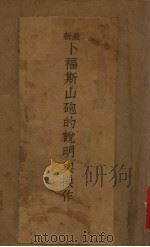 最新
卜福斯山砲的說明與操作
研狗